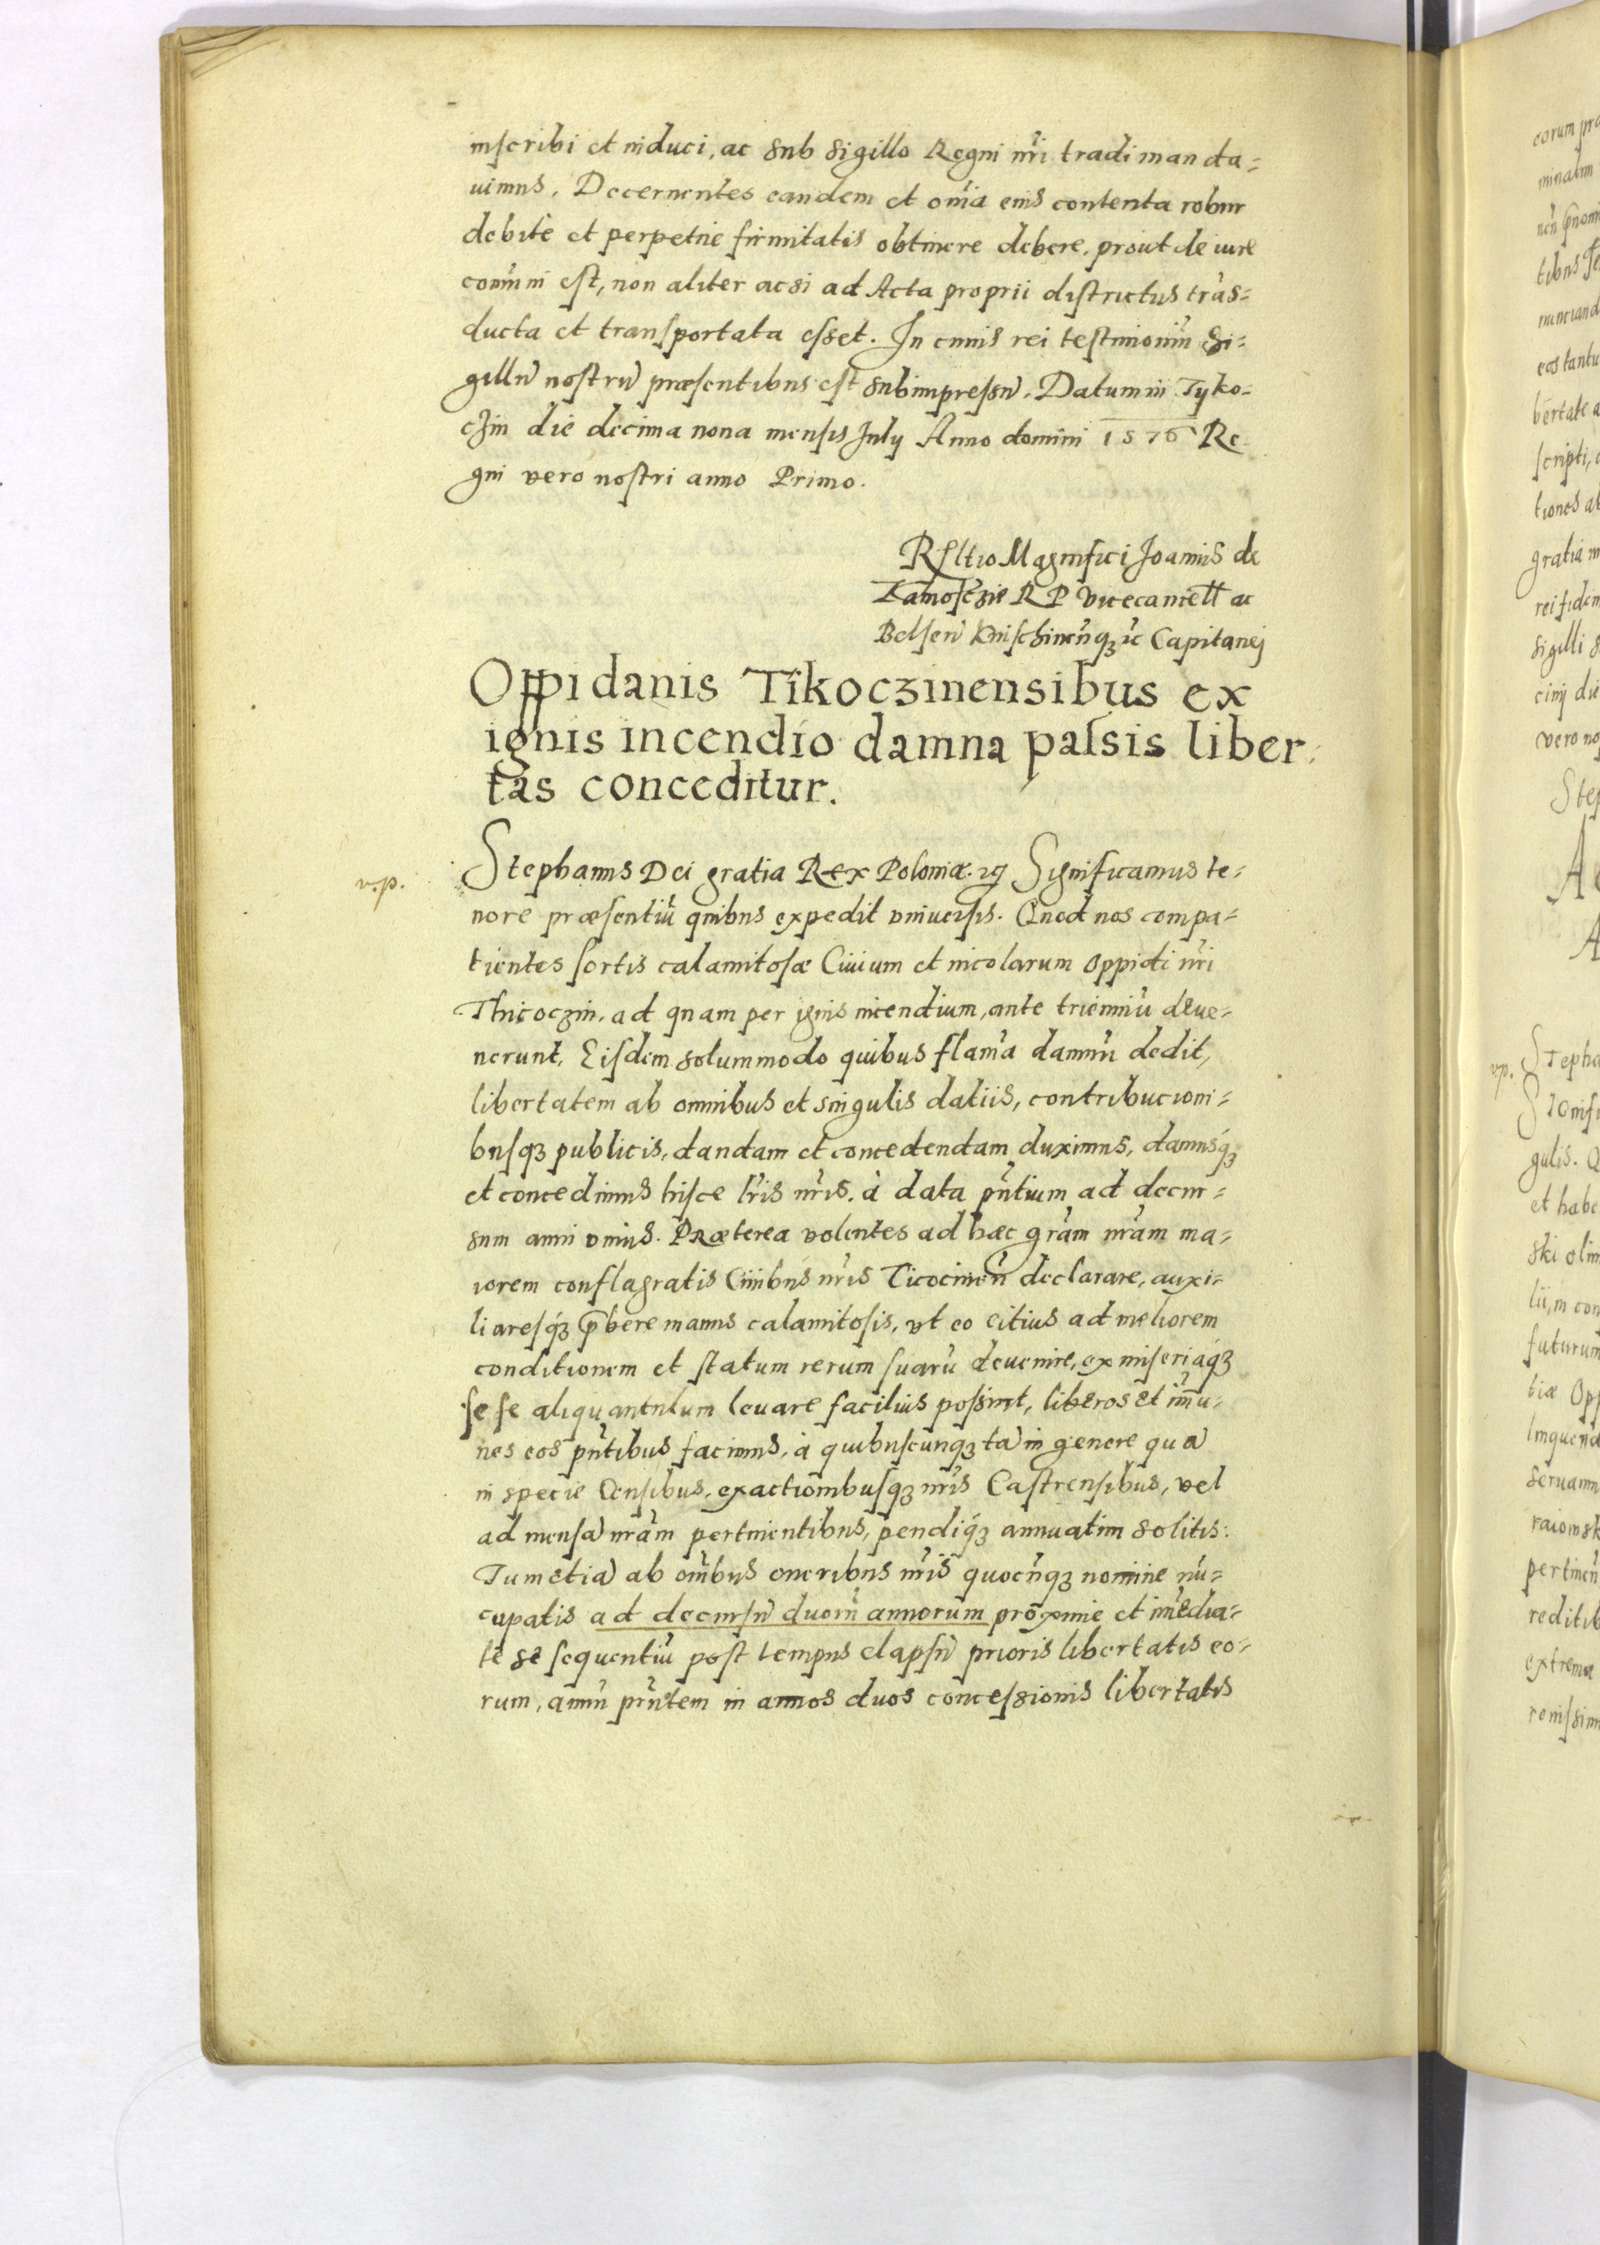 inscribi et induci, ac sub sigillo Regni nr̃i tradi manda=
uimus. Decernentes eandem et om̃ia eius contenta robur
debitę et perpetuę firmitatis obtinere debere, prout de iure
com̃uni est, non aliter ac si ad Acta proprii districtus trãs=
ducta et transportata esset. In cuius rei testimoniũ Si=
gillũ nostrũ præsentibus est subimpressũ. Datum in Tyko=
czin die decima nona mensis July Anno domini 1576 Re
gni vero nostri anno Primo.
Rltio Magnifici Joannis de
Zamosczie R P Vicecancell ac
Belsen Knischinenq̃ȝ Capitanej
Oppidanis Tikoczinensibus ex
ignis incendio damna passis liber
tas conceditur.
v.p.
Stephanus Dei gratia Rex Poloniæ. Significamus te=
nore præsentiũ quibus expedit vniuersis. Quod nos compa=
tientes sortis calamitosæ Ciuium et incolarum Oppidi nr̃i
Thicoczin, ad quam per ignis incendium, ante trienniũ deue=
nerunt, Eisdem solummodo quibus flam̃a damnũ dedit,
libertatem ab omnibus et singulis datiis, contribucioni=
busqȝ publicis, dandam et concedendam duximus, damusqȝ
et concedimus hisce lr̃is nr̃is, à data pñtium ad decur=
sum anni vnius. Præterea volentes ad hæc gr̃am nr̃am ma=
iorem conflagratis Ciuibus nr̃is Ticocineñ declarare, auxi=
liaresqȝ p̃bere manus calamitosis, vt eo citius ad meliorem
conditionem et statum rerum suarũ deuenire, ex miseriaqȝ
se se aliquantulum leuare facilius possint, liberos et im̃u=
nes eos pñtibus facimus, à quibuscunqȝ tã in genere quã
in specie Censibus, exactionibusqȝ nr̃is Castrensibus, vel
ad mensã nr̃am pertinentibus, pendiqȝ annuatim solitis.
Tum etiã ab om̃ibus oneribus nr̃is quocũnqȝ nomine nũ=
cupatis ad decursũ duorũ annorum proxime et im̃edia=
te se sequentiũ post tempus elapsũ prioris libertatis eo=
rum, annũ pr̃ntem in annos duos concessionis libertatis